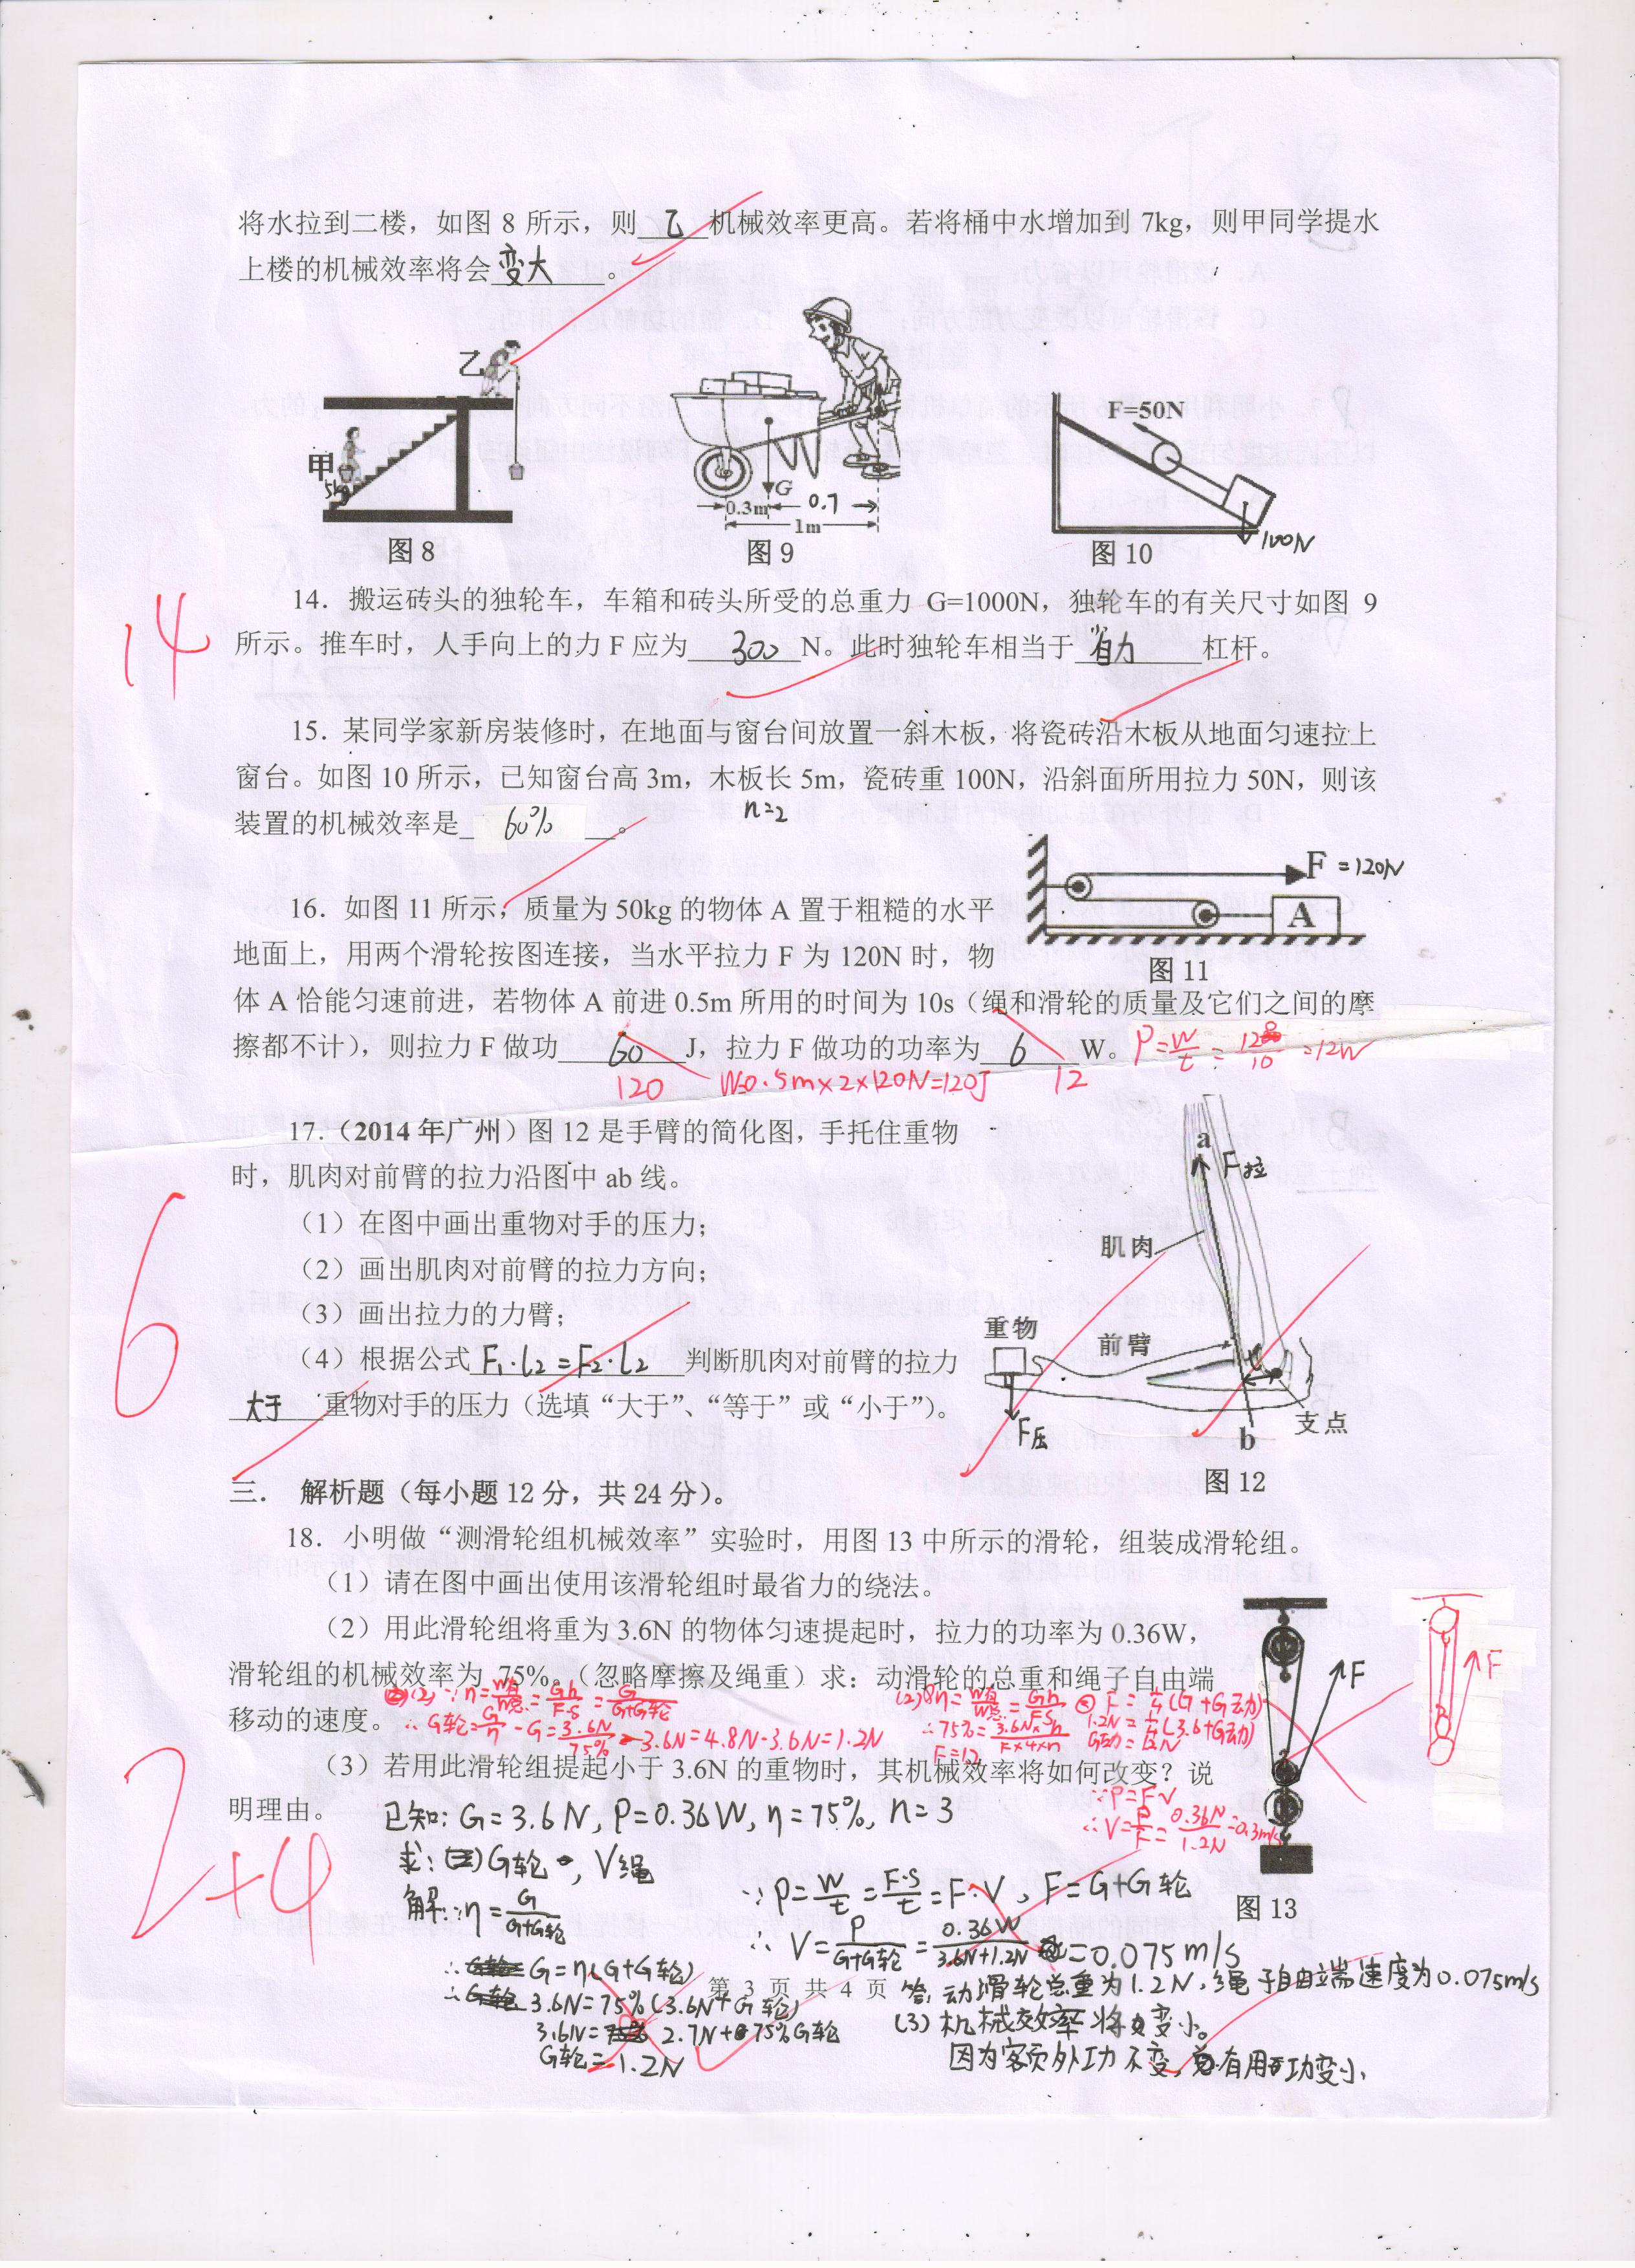 将水拉到二楼，如图 8 所示，则 乙 机械效率更高。若将桶中水增加到 7kg，则甲同学提水
上楼的机械效率将会 变大 。
乙
甲
5kg
图 8
G
0.3m 0.7
1m
图 9
F=50N
100N
图 10
14
14．搬运砖头的独轮车，车箱和砖头所受的总重力 G=1000N，独轮车的有关尺寸如图 9
所示。推车时，人手向上的力 F 应为 300 N。此时独轮车相当于 省力 杠杆。
15．某同学家新房装修时，在地面与窗台间放置一斜木板，将瓷砖沿木板从地面匀速拉上
窗台。如图 10 所示，已知窗台高 3m，木板长 5m，瓷砖重 100N，沿斜面所用拉力 50N，则该
装置的机械效率是 60% 。
n=2
F =120N
A
图 11
16．如图 11 所示，质量为 50kg 的物体 A 置于粗糙的水平
地面上，用两个滑轮按图连接，当水平拉力 F 为 120N 时，物
体 A 恰能匀速前进，若物体 A 前进 0.5m 所用的时间为 10s（绳和滑轮的质量及它们之间的摩
擦都不计），则拉力 F 做功 60 J，拉力 F 做功的功率为 6 W。
120 W=0.5m×2×120N=120J 12
P=W/t=120/10=12W
17．（2014 年广州）图 12 是手臂的简化图，手托住重物
时，肌肉对前臂的拉力沿图中 ab 线。
（1）在图中画出重物对手的压力；
（2）画出肌肉对前臂的拉力方向；
（3）画出拉力的力臂；
（4）根据公式 F₁·l₂=F₂·l₂ 判断肌肉对前臂的拉力
大于 重物对手的压力（选填“大于”、“等于”或“小于”）。
6
a
F拉
肌肉
重物
前臂
F压
b
支点
图 12
三． 解析题（每小题 12 分，共 24 分）。
18．小明做“测滑轮组机械效率”实验时，用图 13 中所示的滑轮，组装成滑轮组。
（1）请在图中画出使用该滑轮组时最省力的绕法。
（2）用此滑轮组将重为 3.6N 的物体匀速提起时，拉力的功率为 0.36W，
滑轮组的机械效率为 75%。（忽略摩擦及绳重）求：动滑轮的总重和绳子自由端
移动的速度。
(2) ∵η=W有/W总=Gh/F·S=G/G+G轮
∴G轮=G/η-G=3.6N/75%-3.6N=4.8N-3.6N=1.2N
η=W有/W总=Gh/FS
∴75%=3.6N×h/F×4×h
F=1.2
F=1/4(G+G动)
1.2N=1/4(3.6+G动)
（3）若用此滑轮组提起小于 3.6N 的重物时，其机械效率将如何改变？说
明理由。
∵P=Fv
∴V=P/F=0.36N/1.2N=0.3m/s
F
F
图 13
2+4
已知：G=3.6N, P=0.36W, η=75%, n=3
求：G轮, V绳
解：∵η=G/G+G轮
∴G=η(G+G轮)
∴3.6N=75%(3.6N+G轮)
3.6N=2.7N+75%G轮
G轮=1.2N
∵P=W/t=F·S/t=F·V，F=G+G轮
∴V=P/G+G轮=0.36W/3.6N+1.2N=0.075m/s
第 3 页 共 4 页
答：动滑轮总重为1.2N，绳子自由端速度为0.075m/s
(3) 机械效率将变小。
因为额外功不变，有用功变小